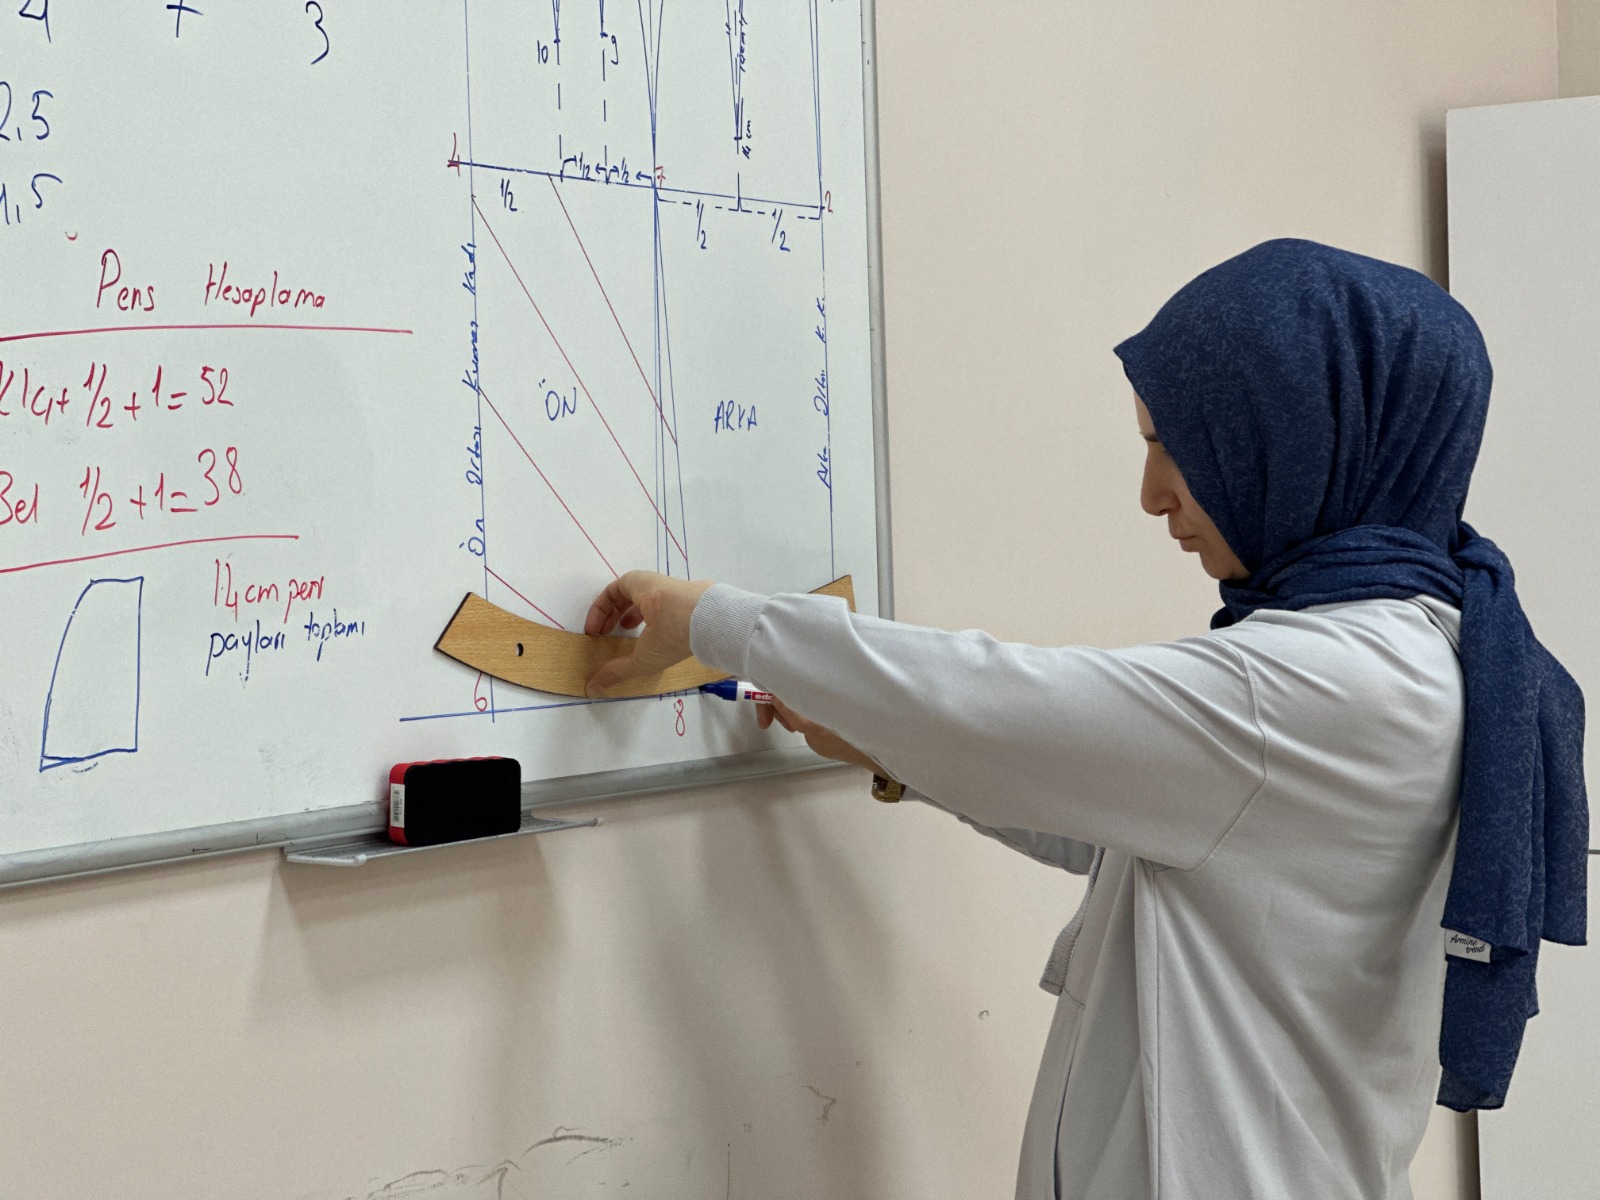 4 + 3
2,5
1,5
Pens Hesaplama
+ 1/2 + 1 = 52
Bel 1/2 + 1 = 38
14 cm pens
payları toplamı
10
9
14 cm
4
1/2
1/2
1/2
7
1/2
1/2
2
Ön Ortası Kumaş Katı
ÖN
ARKA
Arka Ortası K. K.
6
8
edding
Armine
trend